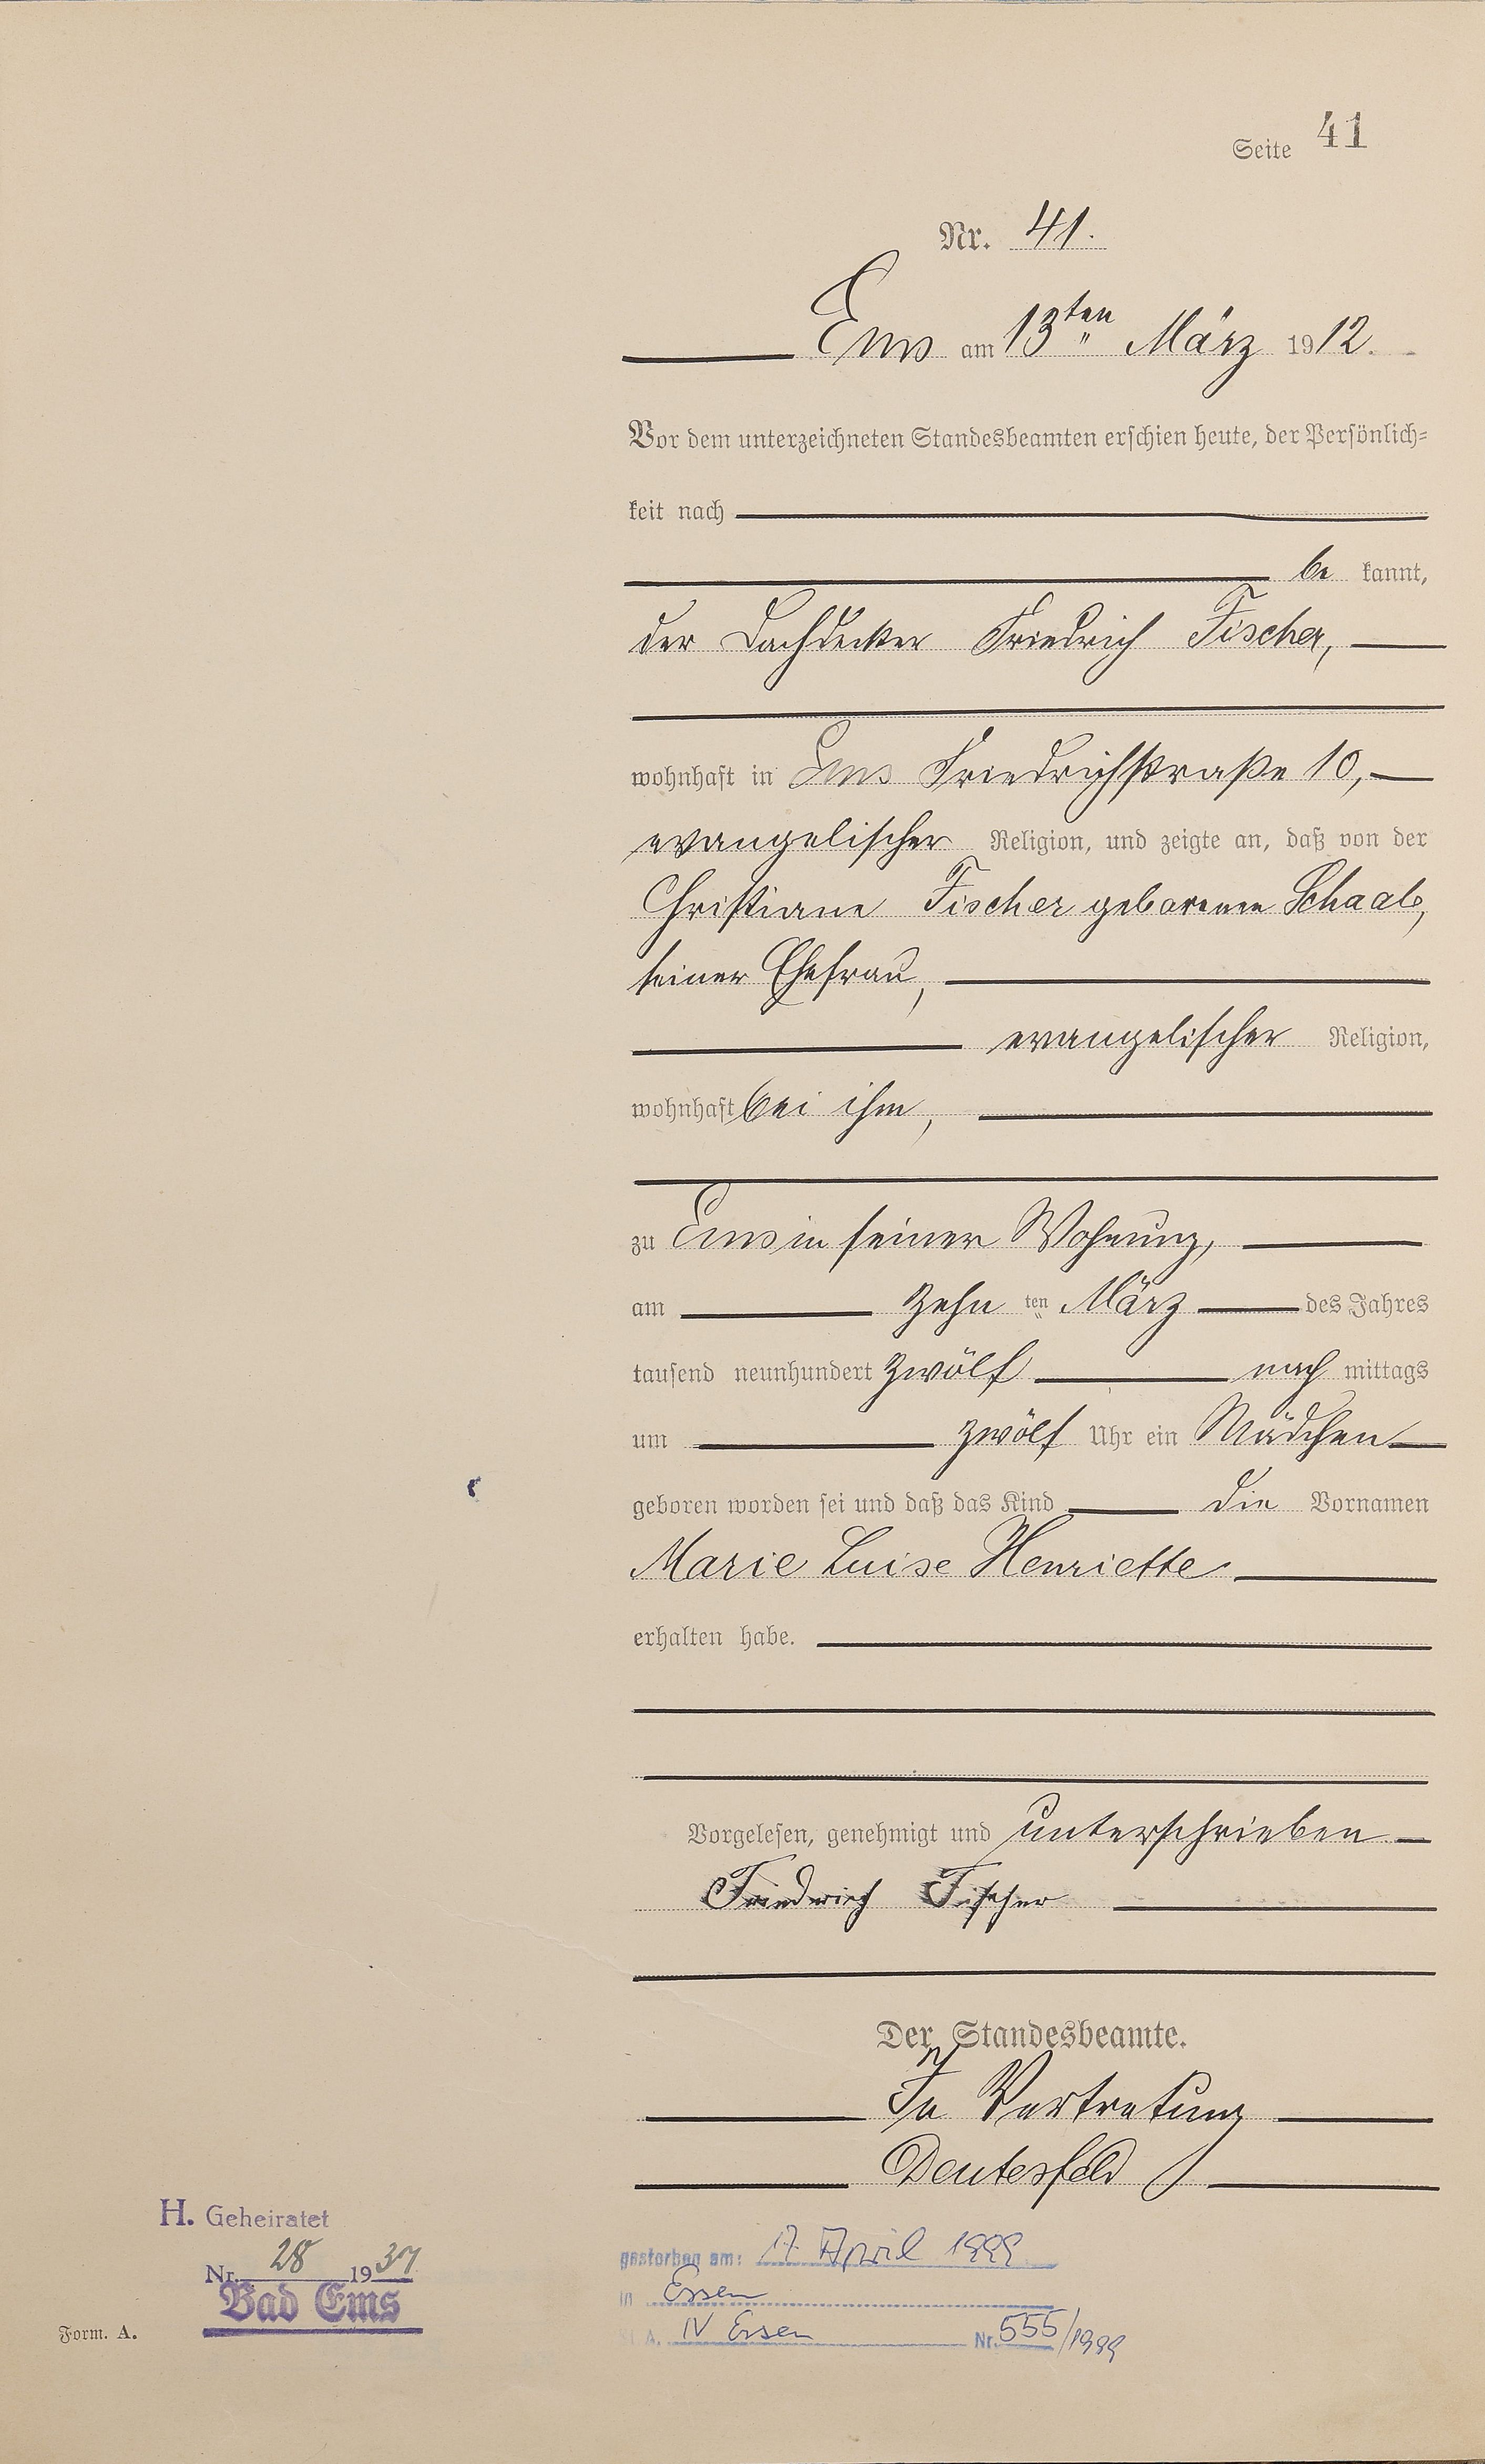 Seite 41
Nr. 41.
Ems am 13ten März 1912.
Vor dem unterzeichneten Standesbeamten erschien heute, der Persönlich-
keit nach
be kannt,
der Dachdecker Friedrich Fischer,
wohnhaft in Ems Friedrichstraße 10,
evangelischer Religion, und zeigte an, daß von der
Christiane Fischer geborenen Schaab,
seiner Ehefrau,
evangelischer Religion,
wohnhaft bei ihm,
zu Ems in seiner Wohnung,
am zehn ten März des Jahres
tausend neunhundert zwölf nach mittags
um zwölf Uhr ein Mädchen
geboren worden sei und daß das Kind die Vornamen
Marie Luise Henriette
erhalten habe.
Vorgelesen, genehmigt und unterschrieben
Friedrich Fischer
Der Standesbeamte.
In Vertretung
Deutesfeld
H. Geheiratet
Nr. 28 1937
Bad Ems
gestorben am: 17. April 1999
in Essen
St. A. IV Essen Nr. 555/1999
Form. A.